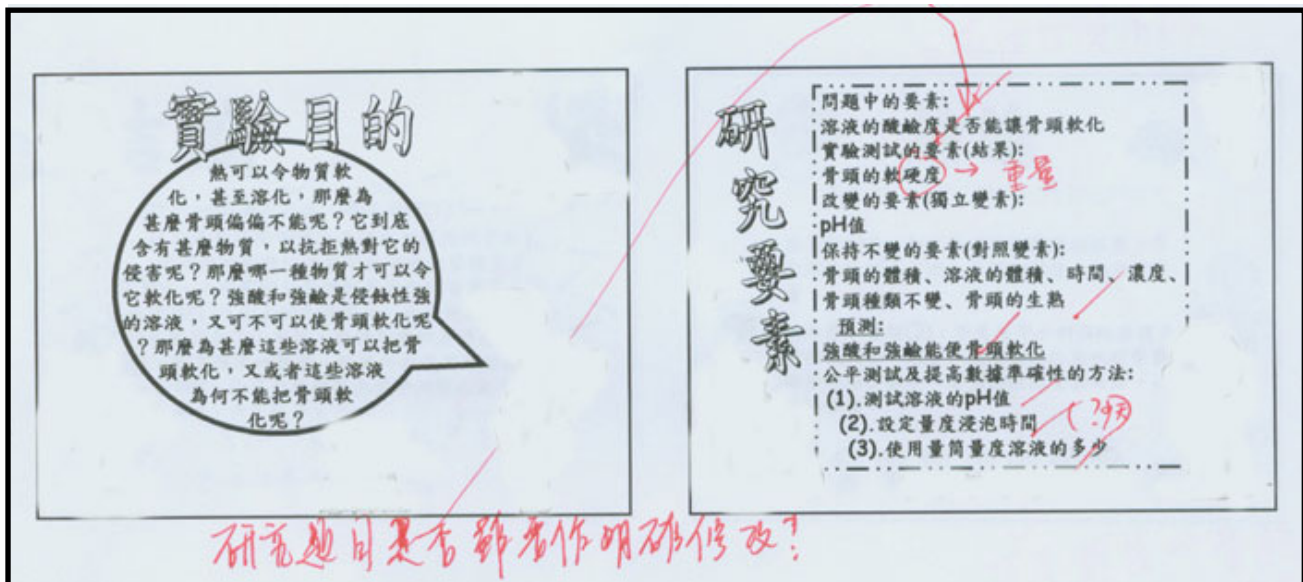 實驗目的
熱可以令物質軟
化，甚至溶化，那麼為
甚麼骨頭偏偏不能呢？它到底
含有甚麼物質，以抗拒熱對它的
侵害呢？那麼哪一種物質才可以令
它軟化呢？強酸和強鹼是侵蝕性強
的溶液，又可不可以使骨頭軟化呢
？那麼為甚麼這些溶液可以把骨
頭軟化，又或者這些溶液
為何不能把骨頭軟
化呢？
研究要素
問題中的要素:
溶液的酸鹼度是否能讓骨頭軟化
實驗測試的要素(結果):
骨頭的軟硬度 → 重量
改變的要素(獨立變素):
pH值
保持不變的要素(對照變素):
骨頭的體積、溶液的體積、時間、濃度、
骨頭種類不變、骨頭的生熟
預測:
強酸和強鹼能使骨頭軟化
公平測試及提高數據準確性的方法:
(1).測試溶液的pH值
(2).設定量度浸泡時間
(3).使用量筒量度溶液的多少
研究題目是否作明確修改?